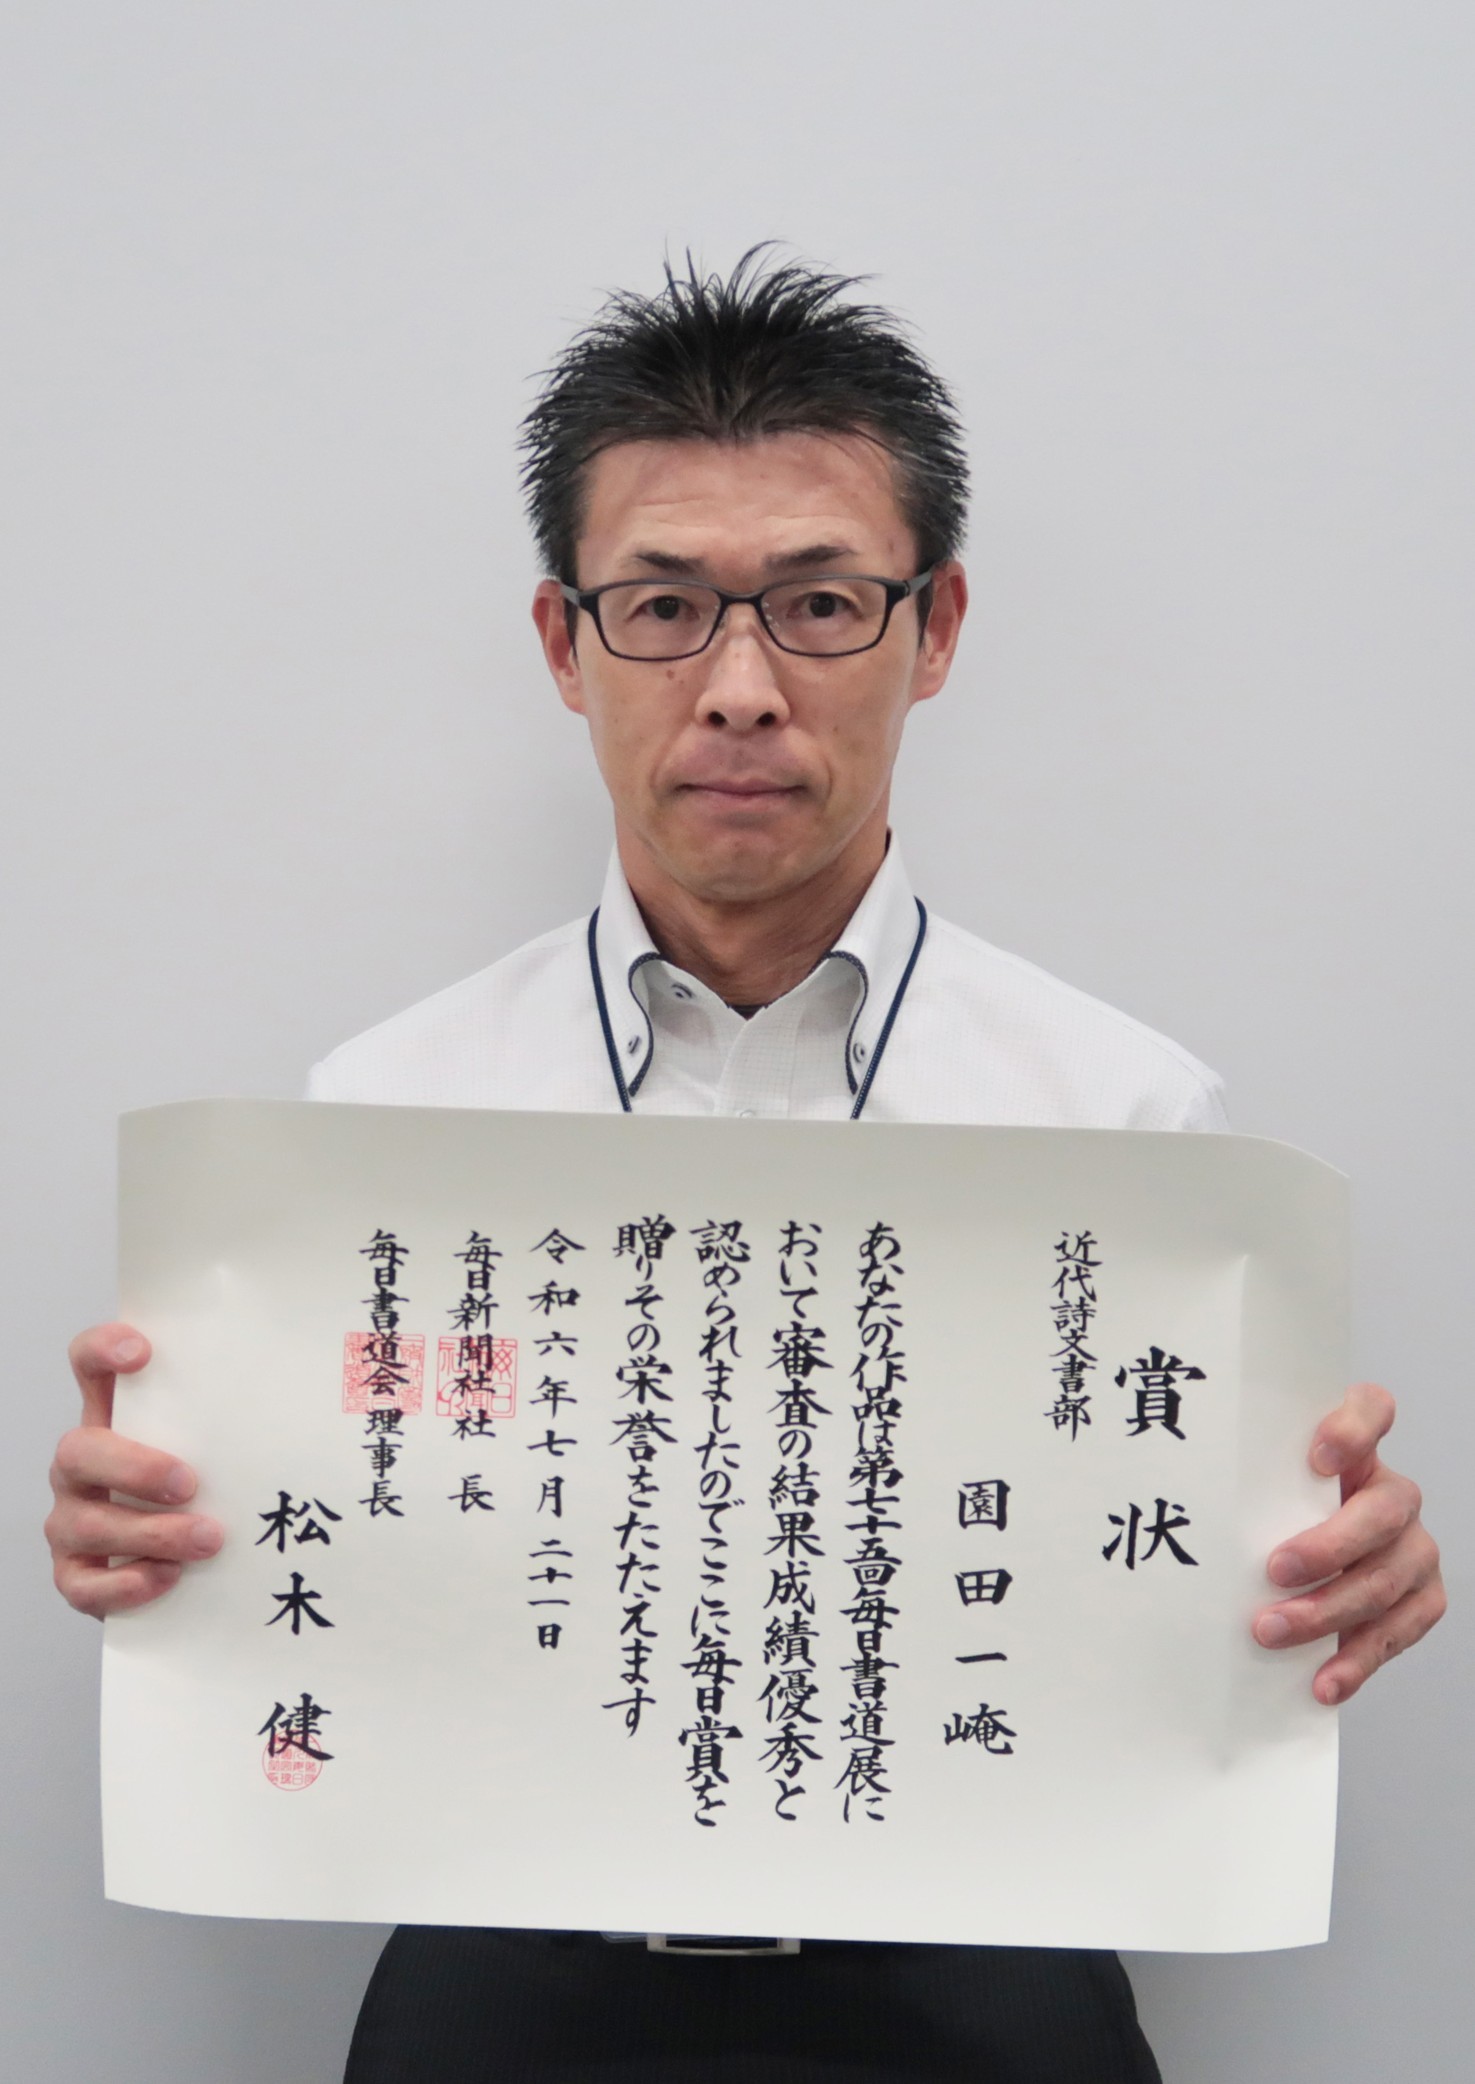 賞状
近代詩文書部
園田一崦
あなたの作品は第七十五回毎日書道展に
おいて審査の結果成績優秀と
認められましたのでここに毎日賞を
贈りその栄誉をたたえます
令和六年七月二十一日
毎日新聞社社長
毎日書道会理事長
松木健